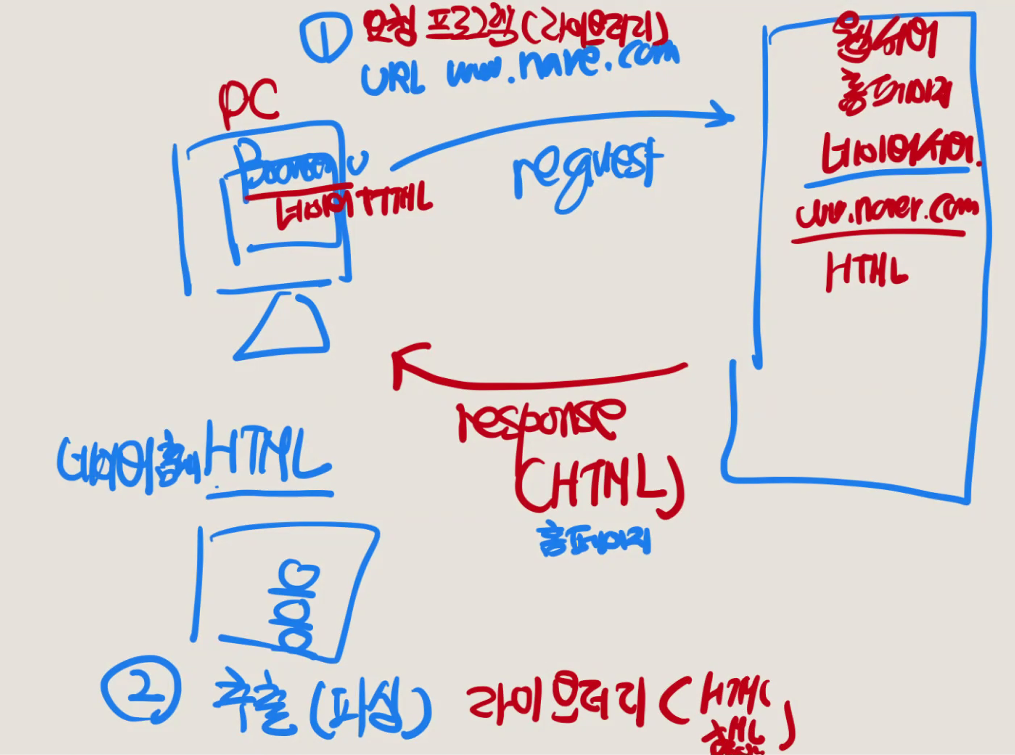 ① 요청 프로그램(라이브러리)
URL www.nave.com
PC
request
네이버 HTML
웹서버
홈페이지
네이버서버.
www.naver.com
HTML
response
(HTML)
홈페이지
네이버홈페 HTML
② 추출 (파싱) 라이브러리(